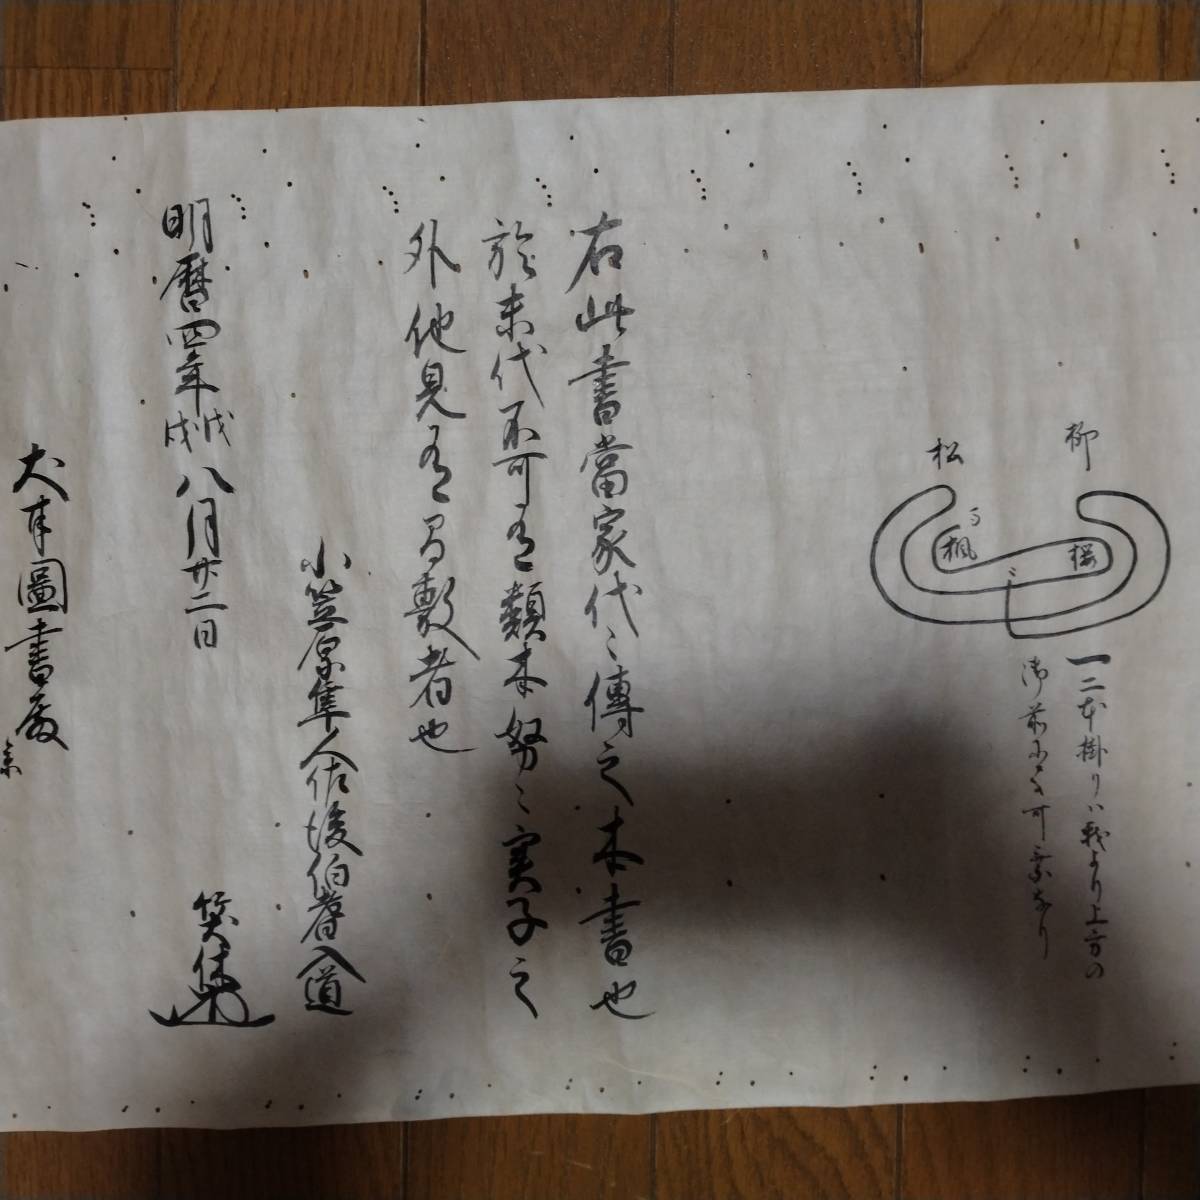 柳
松
桜
楓
一二本掛りハ我より上方の
御前にて可乗なり
右此書當家代〻傳之本書也
於末代不可有類本努〻実子之
外他見有間敷者也
小笠原隼人佐後伯耆入道
明暦四年戊戌八月廿二日
犬甘圖書殿